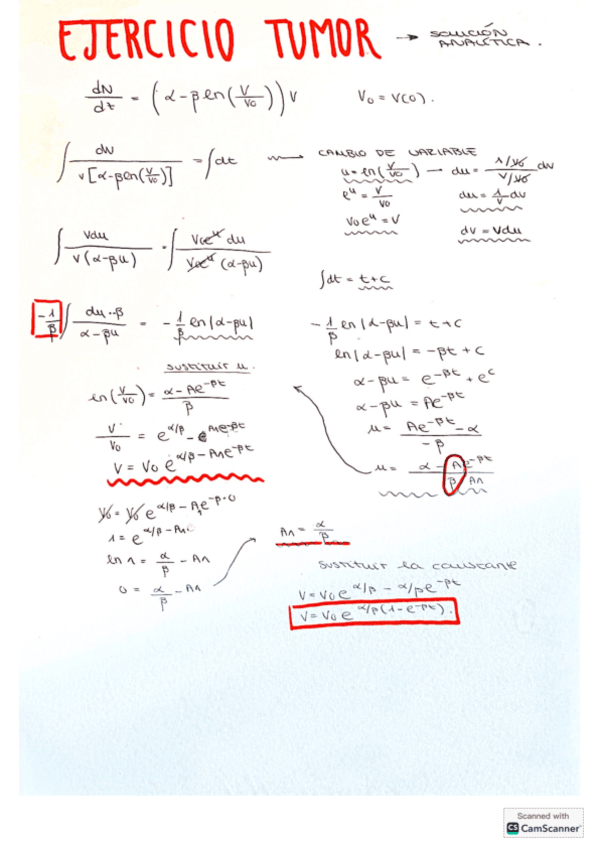 EJERCICIO TUMOR → SOLUCIÓN ANALÍTICA.
dN/dt = (α - β ln(V/V₀)) V    V₀ = V(0).
∫ dV / V[α-βln(V/V₀)] = ∫dt → CAMBIO DE VARIABLE
u = ln(V/V₀) → du = (1/V₀)/(V/V₀) dv
eᵘ = V/V₀    du = 1/V dv
V₀eᵘ = V    dv = Vdu
∫ Vdu / V(α-βu) = ∫ V₀eᵘ du / V₀eᵘ (α-βu)
∫dt = t+c
-1/β ∫ du·-β / α-βu = -1/β ln|α-βu|
-1/β ln|α-βu| = t+c
ln|α-βu| = -βt + c
α-βu = e^-βt + e^c
α-βu = Ae^-βt
u = Ae^-βt - α / -β
u = α - Ae^-βt / β    A₁
sustituir u.
ln(V/V₀) = α - Ae^-βt / β
V/V₀ = e^α/β - e^A₁e^-βt
V = V₀ e^α/β - A₁e^-βt
V₀ = V₀ e^α/β - A₁e^-β·0
1 = e^α/β - A₁
ln 1 = α/β - A₁
0 = α/β - A₁
A₁ = α/β
sustituir la constante
V = V₀e^α/β - α/βe^-βt
V = V₀ e^α/β(1-e^-βt).
Scanned with
CS CamScanner